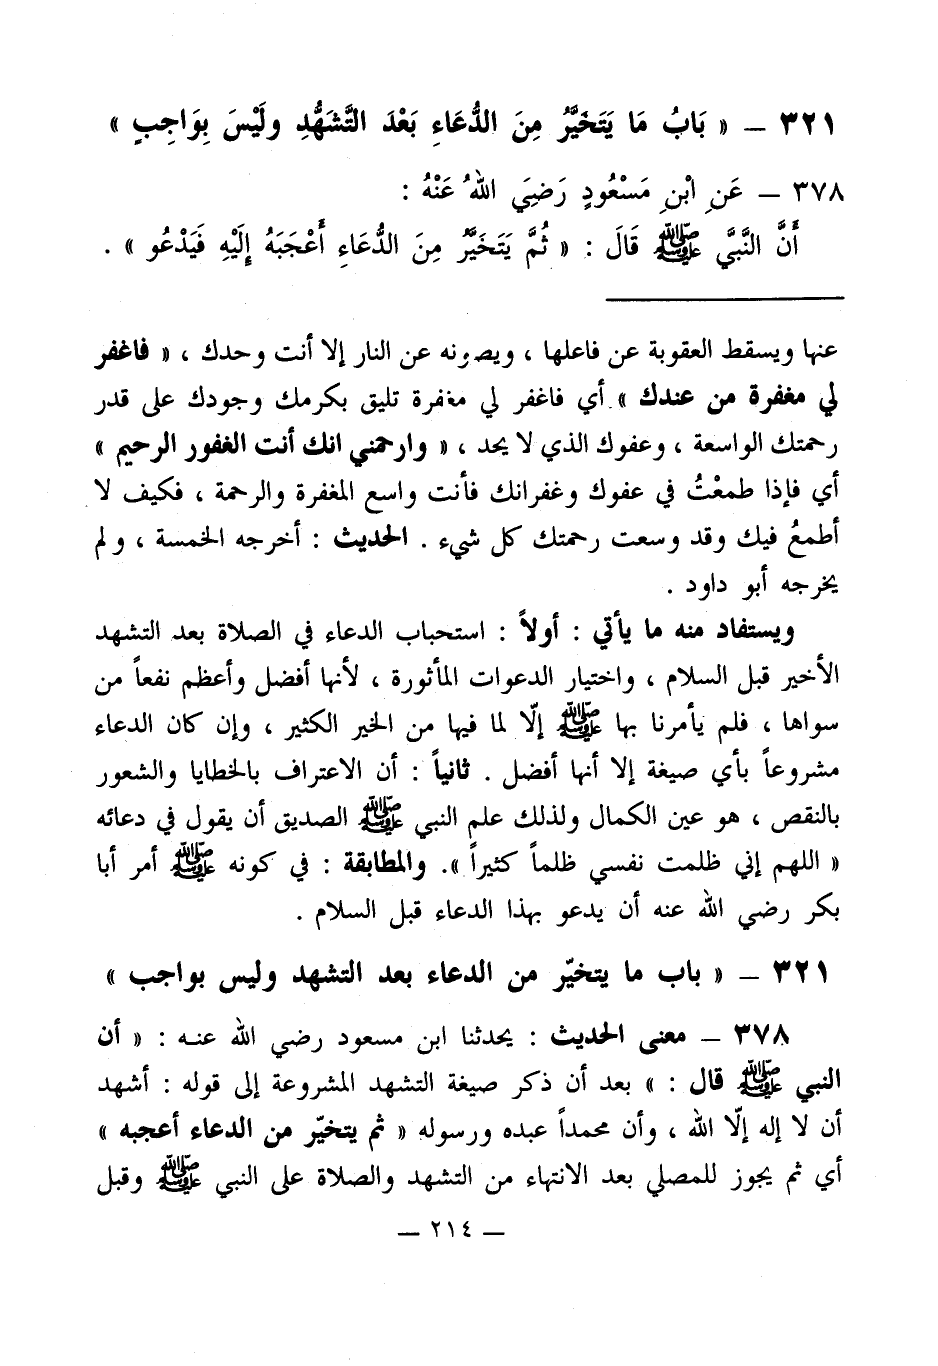 ٣٢١ – « بَابُ مَا يَتَخَيَّرُ مِنَ الدُّعَاءِ بَعْدَ التَّشَهُّدِ ولَيْسَ بِوَاجِبٍ »
٣٧٨ – عَنِ ابْنِ مَسْعُودٍ رَضِيَ اللهُ عَنْهُ :
أَنَّ النَّبَّي ﷺ قَالَ : « ثُمَّ يَتَخَيَّرُ مِنَ الدُّعَاءِ أَعْجَبَهُ إِلَيْهِ فَيَدْعُو » .
عنها ويسقط العقوبة عن فاعلها ، ويصونه عن النار إلا أنت وحدك ، « فاغفر
لي مغفرة من عندك » أي فاغفر لي مغفرة تليق بكرمك وجودك على قدر
رحمتك الواسعة ، وعفوك الذي لا يحد ، « وارحمني انك أنت الغفور الرحيم »
أي فإذا طمعْتُ في عفوك وغفرانك فأنت واسع المغفرة والرحمة ، فكيف لا
أطمعُ فيك وقد وسعت رحمتك كل شيء . الحديث : أخرجه الخمسة ، ولم
يخرجه أبو داود .
ويستفاد منه ما يأتي : أولاً : استحباب الدعاء في الصلاة بعد التشهد
الأخير قبل السلام ، واختيار الدعوات المأثورة ، لأنها أفضل وأعظم نفعاً من
سواها ، فلم يأمرنا بها ﷺ إلّا لما فيها من الخير الكثير ، وإن كان الدعاء
مشروعاً بأي صيغة إلا أنها أفضل . ثانياً : أن الاعتراف بالخطايا والشعور
بالنقص ، هو عين الكمال ولذلك علم النبي ﷺ الصديق أن يقول في دعائه
« اللهم إني ظلمت نفسي ظلماً كثيراً ». والمطابقة : في كونه ﷺ أمر أبا
بكر رضي الله عنه أن يدعو بهذا الدعاء قبل السلام .
٣٢١ – « باب ما يتخيّر من الدعاء بعد التشهد وليس بواجب »
٣٧٨ – معنى الحديث : يحدثنا ابن مسعود رضي الله عنه : « أن
النبي ﷺ قال : » بعد أن ذكر صيغة التشهد المشروعة إلى قوله : أشهد
أن لا إله إلّا الله ، وأن محمداً عبده ورسوله « ثم يتخيّر من الدعاء أعجبه »
أي ثم يجوز للمصلي بعد الانتهاء من التشهد والصلاة على النبي ﷺ وقبل
– ٢١٤ –